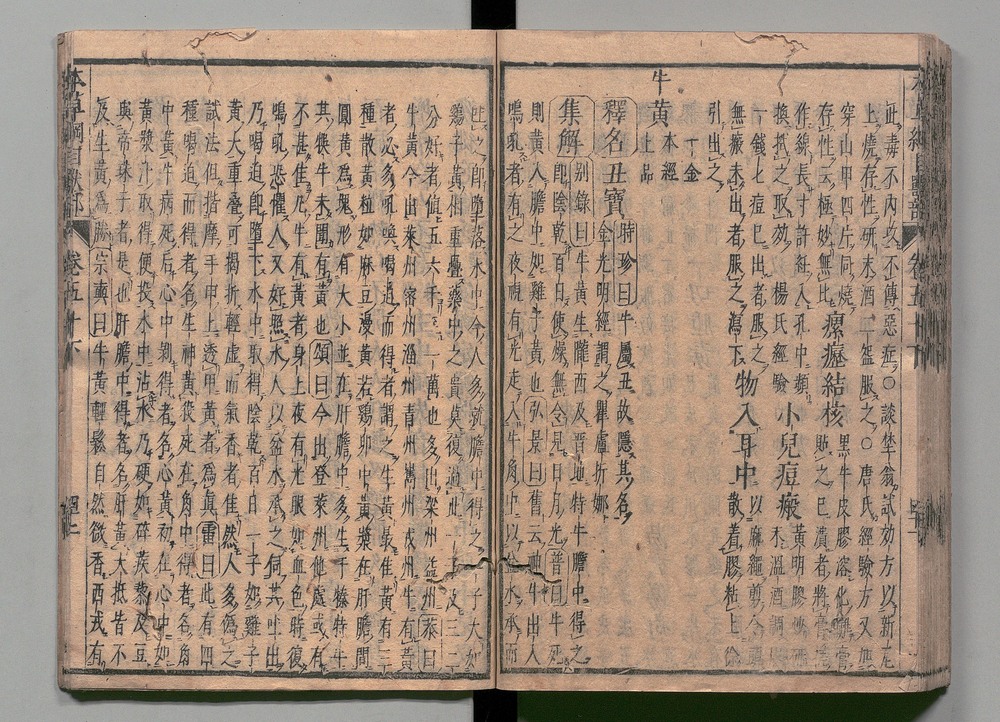 此毒不內攻不傳惡症○談埜翁試効方以新瓦
上燒存性研末酒二盌服之○唐氏經驗方又加
穿山甲四片同燒
存性云極妙無比瘰癧結核黑牛皮膠溶化攤膏
貼之已潰者將膏
作線長寸許紝入孔中頻
換拭之取效楊氏經驗小兒痘瘢黃明膠
水溫酒調
一錢七痘已出者服之
無瘢未出者服之瀉下物入耳中以麻繩剪令頭
散着膠粘上徐
引出之
牛黃本經
上品
釋名丑寶時珍曰牛屬丑故隱其名
金光明經謂之瞿盧折娜
集解别錄曰牛黃生隴西及晉地特牛膽中得之
即陰乾百日使燥無令見日月光普曰牛死
則黃入膽中如雞子黃也弘景曰舊云神牛出入
鳴吼者有之夜視有光走入牛角中以盆水承而
吐之即墮落水中今人多就膽中得之一子大如
鷄子黃相重疊藥中之貴莫復過此一子及三二
分好者值五六千一萬也多出梁州益州恭曰
牛黃今出萊州密州淄州青州嶲州戎州牛有黃
者必多吼喚喝迫而得者謂之生黃最佳黃有三
種散黃粒如麻豆漫黃若鷄卵中黃漿在肝膽間
圓黃爲塊形有大小並在肝膽中多生于㹀特牛
其犑牛未聞有黃也頌曰今出登萊州他處或有
不甚佳凡牛有黃者身上夜有光眼如血色時復
鳴吼恐懼人又好照水人以盆水承之伺其吐出
乃喝迫即墮下水中取得陰乾百日一子如雞子
黃大重疊可揭折輕虛而氣香者佳然人多僞之
試法但揩摩手甲上透甲黃者爲眞雷曰此有四
種喝迫而得者名生神黃殺死在角中得者名角
中黃牛病死後心中剝得者名心黃初在心中如
黃漿汁取得便投水中沾水乃硬如碎蒺蔾及豆
與帝珠子者是也肝膽中得者名肝黃大抵皆不
及生黃爲勝宗奭曰牛黃輕鬆自然微香西戎有
本草綱目獸部
卷五十下